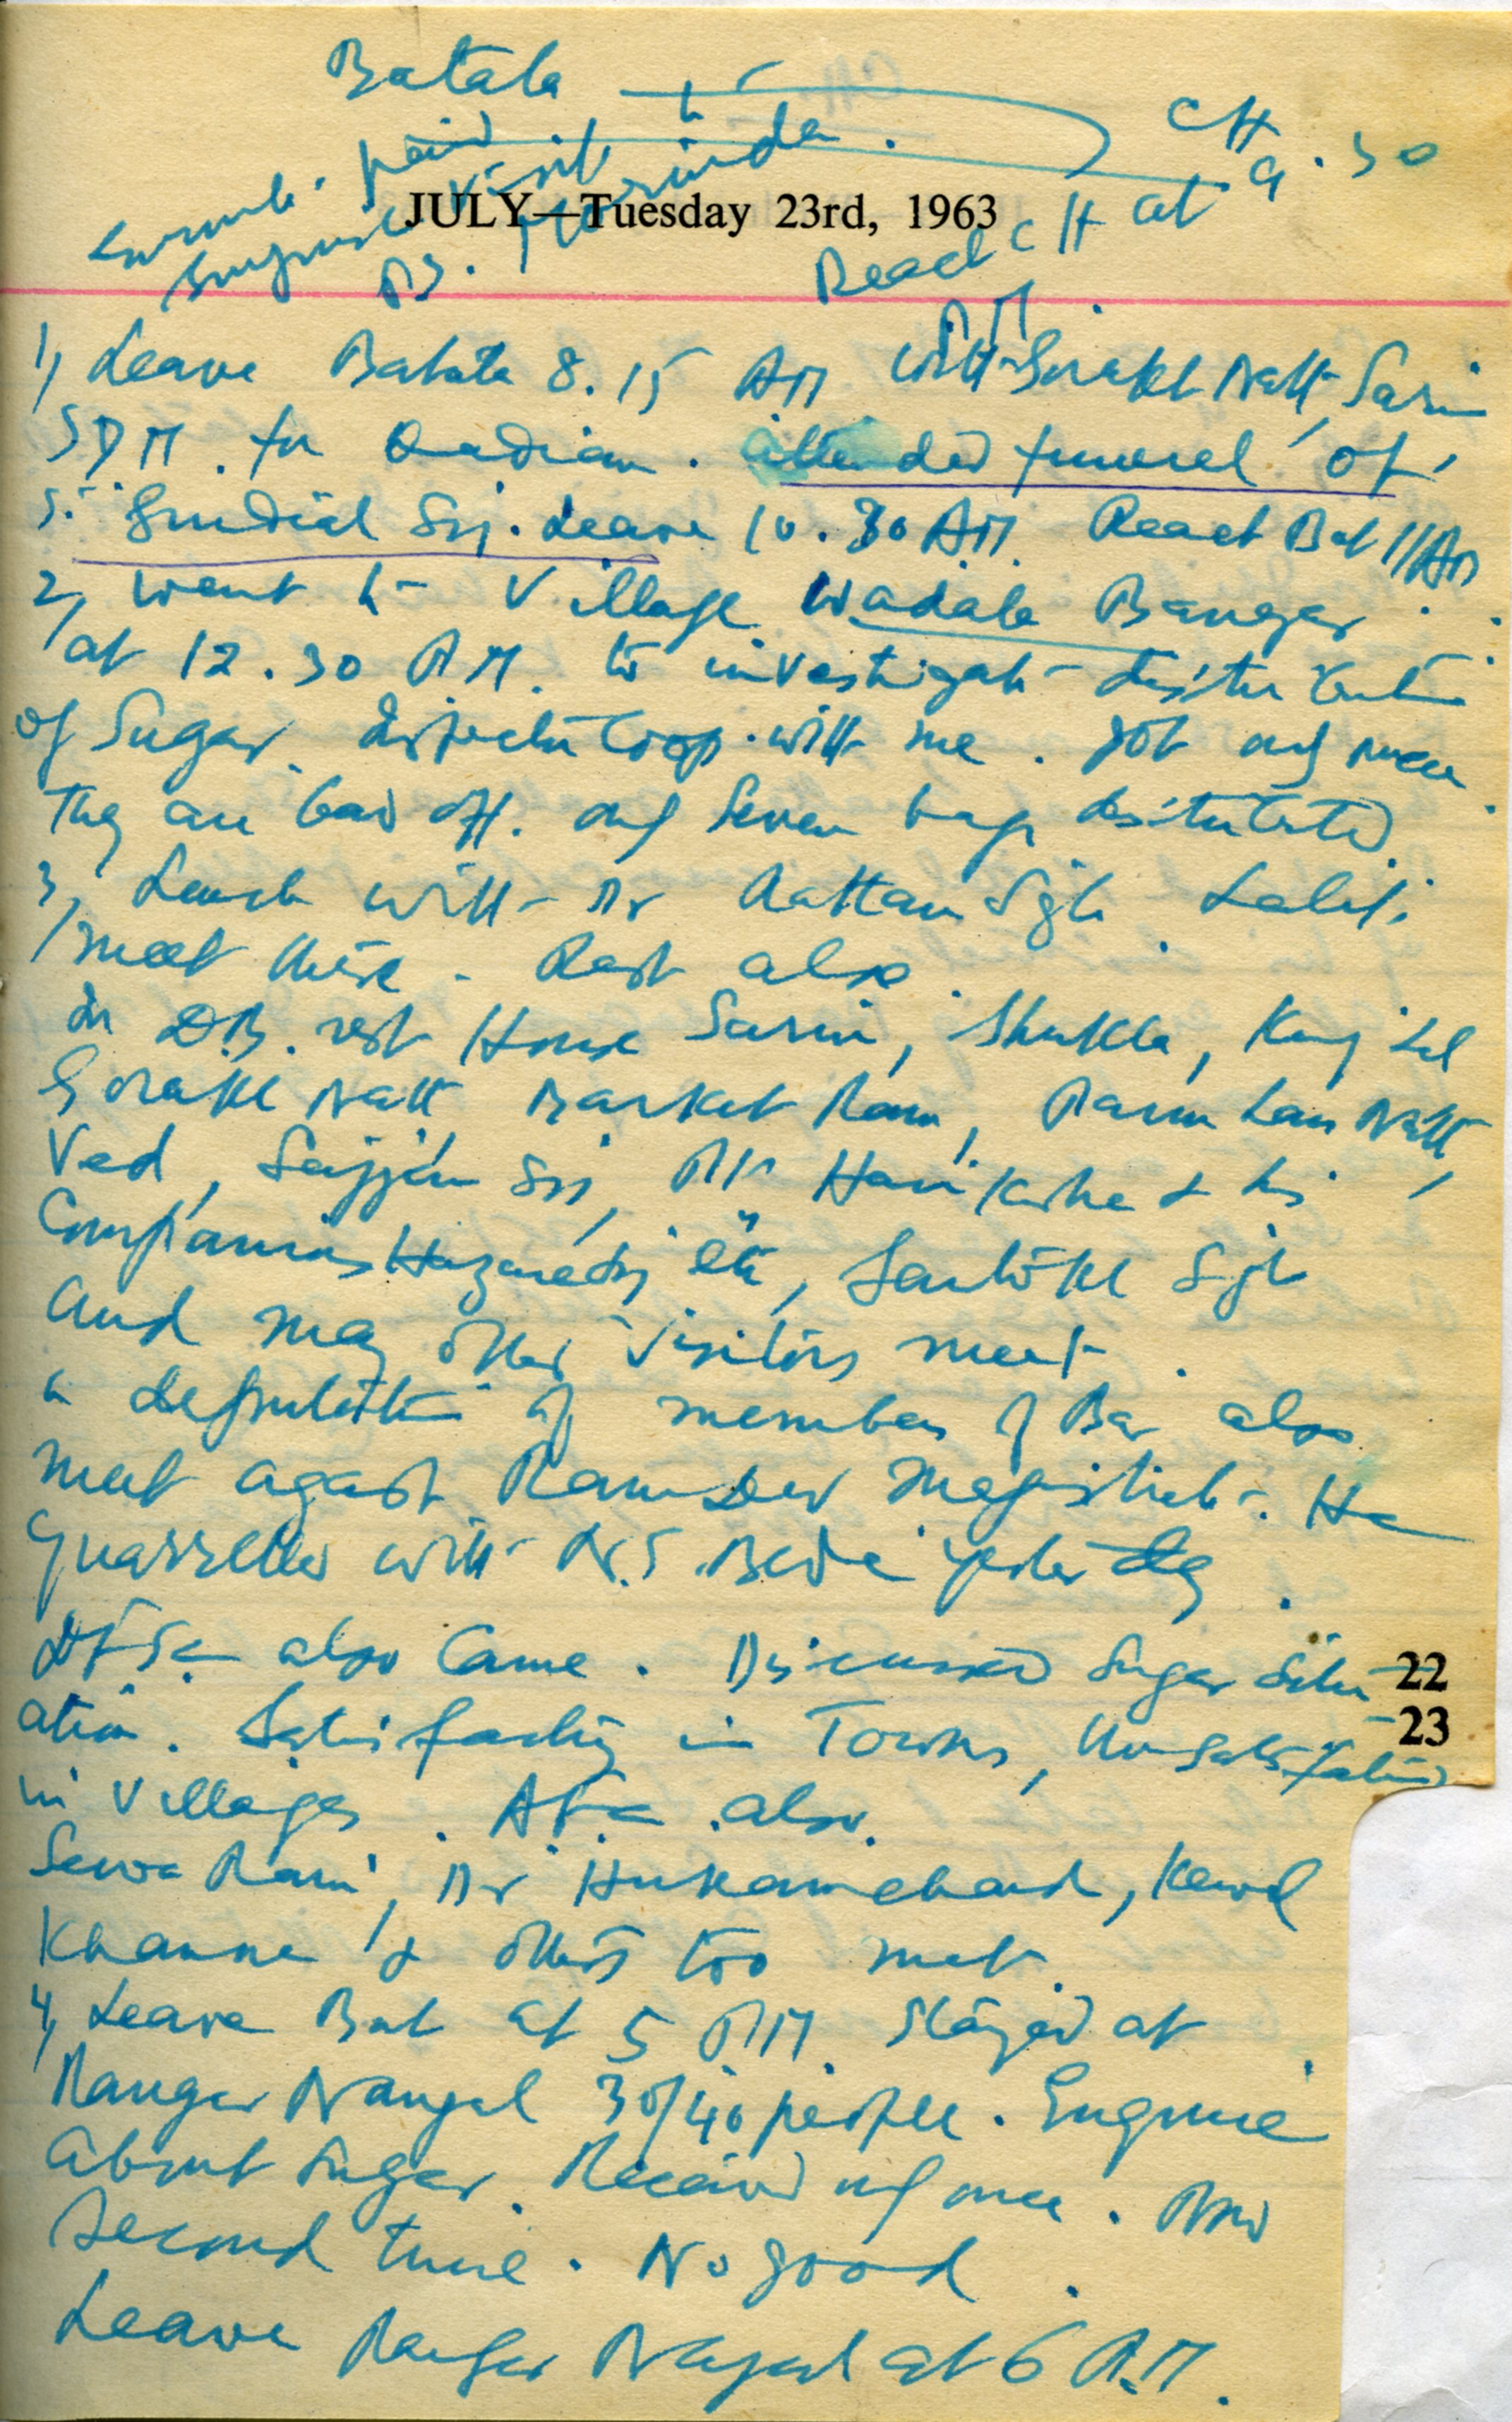 Batala to CH
9.30
JULY—Tuesday 23rd, 1963
enroute paid
surprise visit
PS.
Reach CH at
PM.
1, Leave Batala 8.15 AM with Gorakh Nath, Sarin
SDM. for Quadian. Attended funeral of
S. Gurdial Sgh. Leave 10.30 AM. Reach Bat 11 AM
2, Went to Village Wadala Bangar.
at 12.30 PM. to investigate distribution
of Sugar. Inspector Coop. with me. Got only once.
They are bad off. only Seven bags distributed.
3, Lunch with Dr Rattan Sgh.
meet there. Rest also.
In D.B. rest House Sarin, Shukla, Lal
Gorakh Nath, Barkat Ram, Nath,
Ved, Sajjan Sgh, & his
Companions etc, Santokh Sgh
and many other Visitors meet.
a deputation of members of Bar also
meet against Ram Dev Magistrate. He
quarrelled with N.S. Bedi yesterday.
DFSC also came. Discussed Sugar Situ 22
ation. Satisfactory in Towns, Unsatisfactory 23
in Villages. also.
Sewa Ram, Dr Hukamchand, Kewal
Khanna & others too met.
4, Leave Bat at 5 PM. Stayed at
Rangar Nangal 30/40 people. Enquire
about Sugar. Received only once. Now
second time. No good.
Leave Rangar Nangal at 6 P.M.